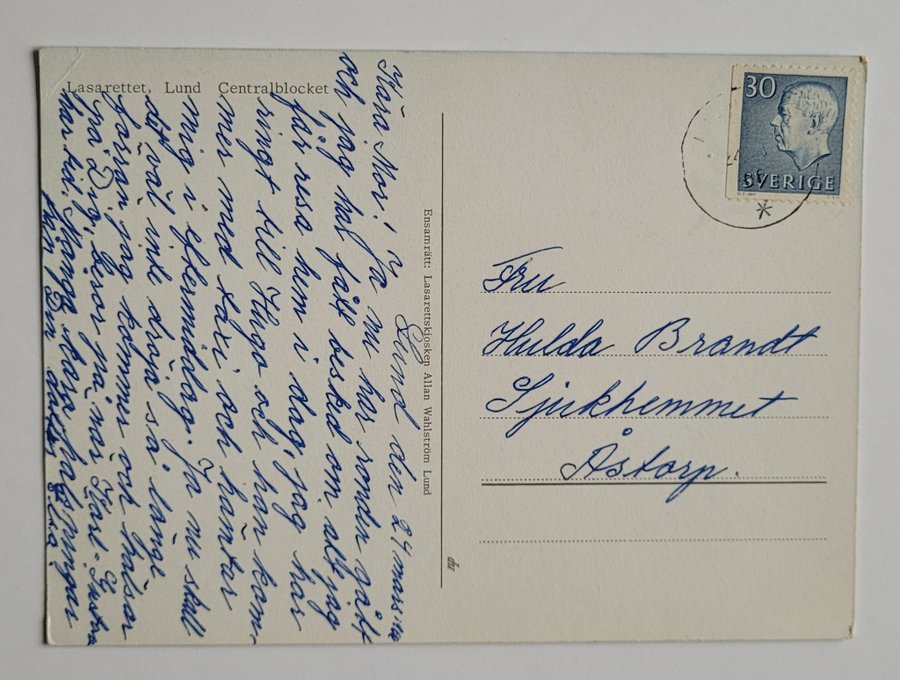 Lasarettet, Lund Centralblocket
Lund den 24 mars
Kära Mor! Ja nu har ronden gått
och jag har fått besked om att jag
får resa hem i dag, jag har
ringt till Hugo och han kom-
mer med taxi och hämtar
mig i eftermiddag. Ja nu skall
det väl inte dröja så länge
förrän jag kommer och hälsar
på Dig, lovar jag när Karl-Gustav
har bil. Många kära hälsningar
från Din dotter
Ensamrätt: Lasarettskiosken Allan Wahlström Lund
du
30
SVERIGE
Fru
Hulda Brandt
Sjukhemmet
Åstorp.